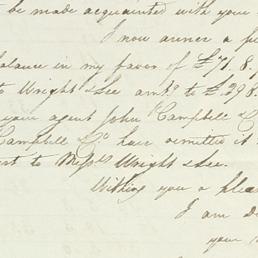 be made acquainted with your
I now annex a
balance in my favor of £71.8.
to Wright & Lee amtg to £298
your agent John Campbell
Campbell Co have remitted it
to Messrs Wright & Lee.
Wishing you a
I am
your